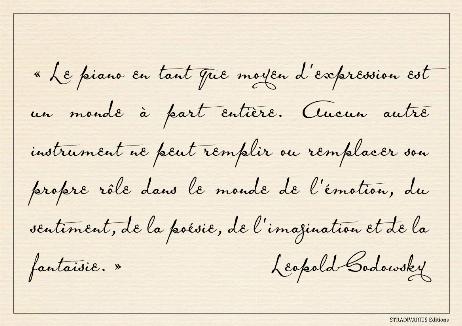 « Le piano en tant que moyen d'expression est
un monde à part entière. Aucun autre
instrument ne peut remplir ou remplacer son
propre rôle dans le monde de l'émotion, du
sentiment, de la poésie, de l'imagination et de la
fantaisie. » Leopold Godowsky
STRADIVARIUS Editions